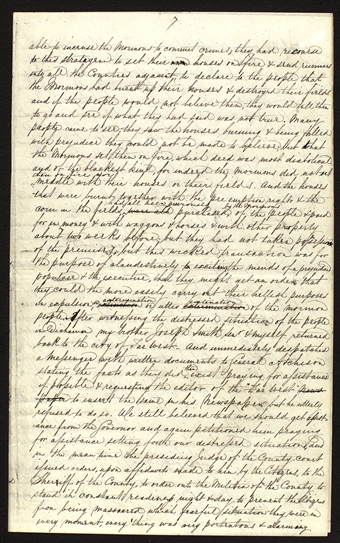 7
able to incense the Mormons to commit crimes, they had recourse
to this stratagem to set their houses on fire & send runners
into all the Counties adjacent, to declare to the people that
the Mormons had burnt up their houses & destroyed their fields
and if the people would not believe them, they would tell them
to go and see if what they had said was not true. Many
people came to see, they saw the houses burning & being filled
with prejudice they would not be made to believe, but that
the Mormons set them on fire, which deed was most diabolical
and of the blackest kind, for indeed the Mormons did not set
them on fire, nor
meddle with their houses or their fields. And the houses
that were burnt, together with the pre emption rights & the
corn in the fields, had all been previously purchased by the Mormons of the people & paid
for in money & with waggons & horses & with other property
about two weeks before, but they had not taken possession
of the premises, but this wicked transaction was for
the purpose of clandestinely exciting the minds of a prejudiced
populace & the executive, that they might get an order, that
they could the more easily carry out their hellish purposes
in expulsion or extermination of the Mormon
people. After witnessing the distressed situation of the people
in Diahman my brother Joseph Smith & myself returned
back to the city of Far West. And immediately despatched
a Messenger with written documents to General Atchison
stating the facts as they did then exist praying for assistance
if possible & requesting the editor of the "Far West"
to insert the same in his Newspaper, but he utterly
refused to do so. We still believed that we should get assist-
ance from the Governor and again petitioned him, praying
for assistance setting forth our distressed situation. And
in the mean time the presiding Judge of the County court
issued orders, upon affidavits made to him by the Citizens, to the
Sheriff of the County, to order out the Militia of the County to
stand in constant readiness night & day to prevent the Citizens
from being massacred which fearful situation they were in
every moment, every thing was very portentous & alarming.